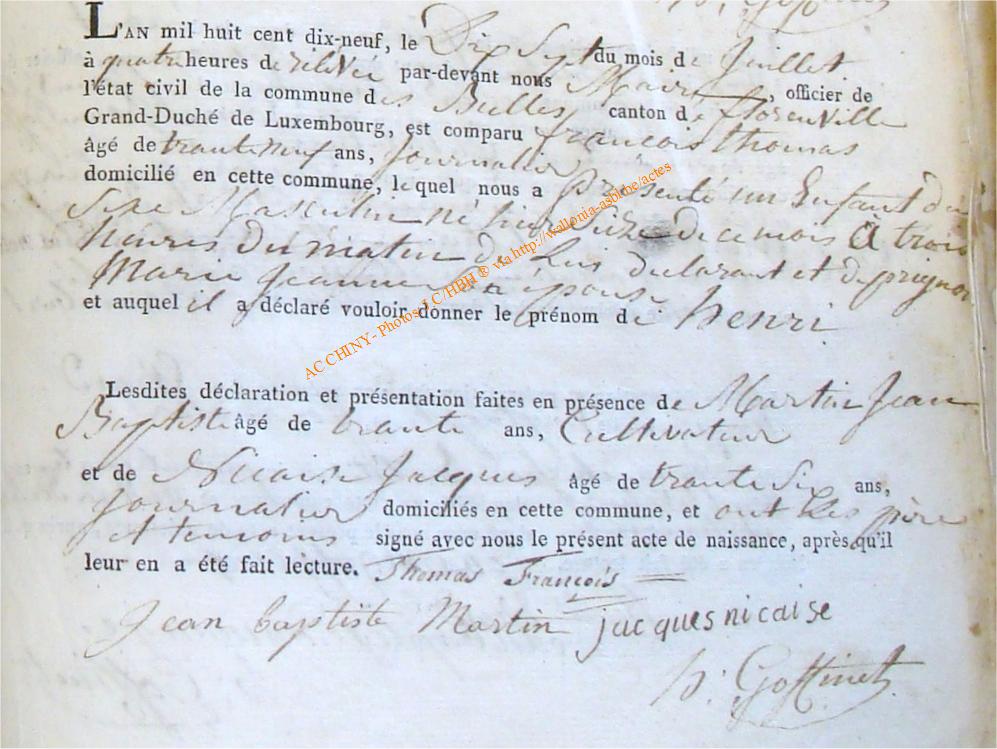 h. Goffinet
L'AN mil huit cent dix-neuf, le Dix Sept du mois de Juillet
à quatre heures de rélévée par-devant nous Maire, officier de
l'état civil de la commune des Bulles canton de florenville
Grand-Duché de Luxembourg, est comparu francois thomas
âgé de trante neuf ans, Journalier
domicilié en cette commune, lequel nous a presenté un Enfant du
Sexe Masculin né hier Sieze de ce mois à trois
heures du matin de Lui declarant et de prignon
Marie Jeanne Sa épouse
et auquel il a déclaré vouloir donner le prénom de henri
Lesdites déclaration et présentation faites en présence de Martin Jean
Baptiste âgé de trante ans, Cultivateur
et de Nicaise Jacques âgé de trante Six ans,
Journalier domiciliés en cette commune, et ont Les père
et temoins signé avec nous le présent acte de naissance, après qu'il
leur en a été fait lecture. Thomas François
Jean baptiste Martin jacques nicaise
h. Goffinet
AC CHINY - Photos J.C/HBH ® via http://wallonia-asbl.be/actes